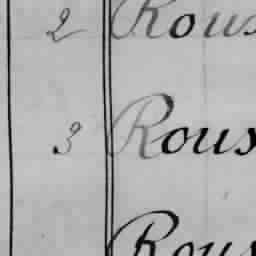 2 Rous
3 Rous
Rous